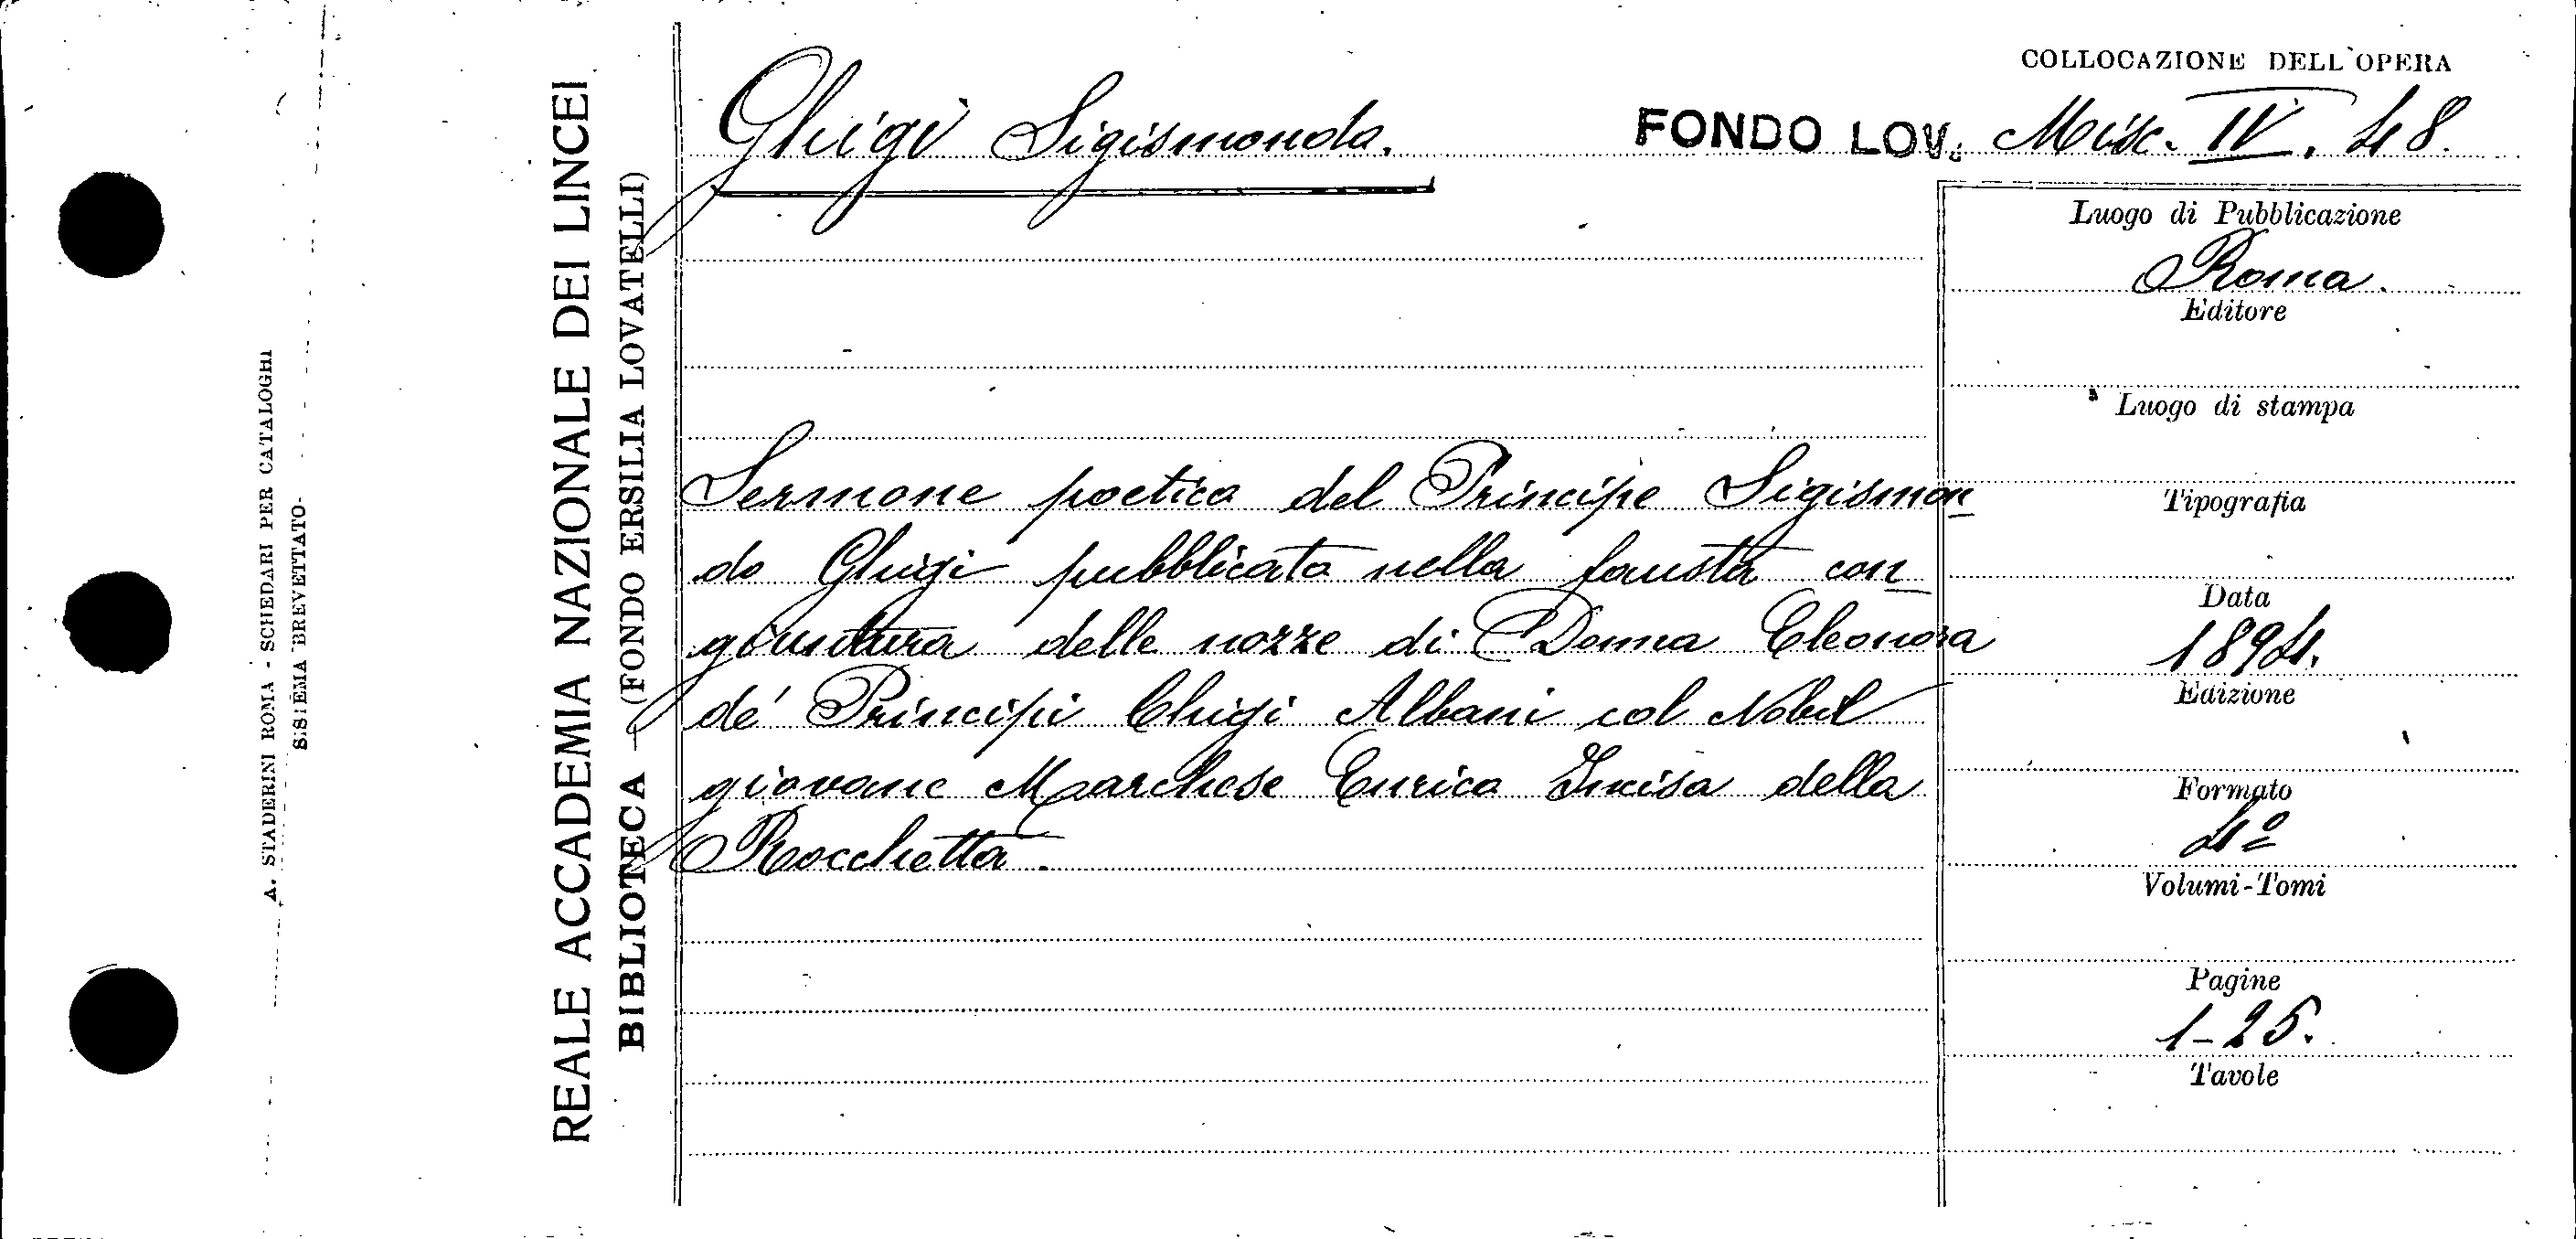 A. STADERINI ROMA - SCHEDARI PER CATALOGHI
SISTEMA BREVETTATO
REALE ACCADEMIA NAZIONALE DEI LINCEI
BIBLIOTECA - (FONDO ERSILIA LOVATELLI)
Chigi Sigismondo.
COLLOCAZIONE DELL'OPERA
FONDO LOV. Misc. IV. 48.
Sermone poetico del Principe Sigismon
do Chigi pubblicato nella fausta con
giuntura delle nozze di Donna Eleonora
de' Principi Chigi Albani col Nobil
giovane Marchese Enrico Incisa della
Rocchetta.
Luogo di Pubblicazione
Roma.
Editore
Luogo di stampa
Tipografia
Data
1894.
Edizione
Formato
4º
Volumi-Tomi
Pagine
1-25.
Tavole